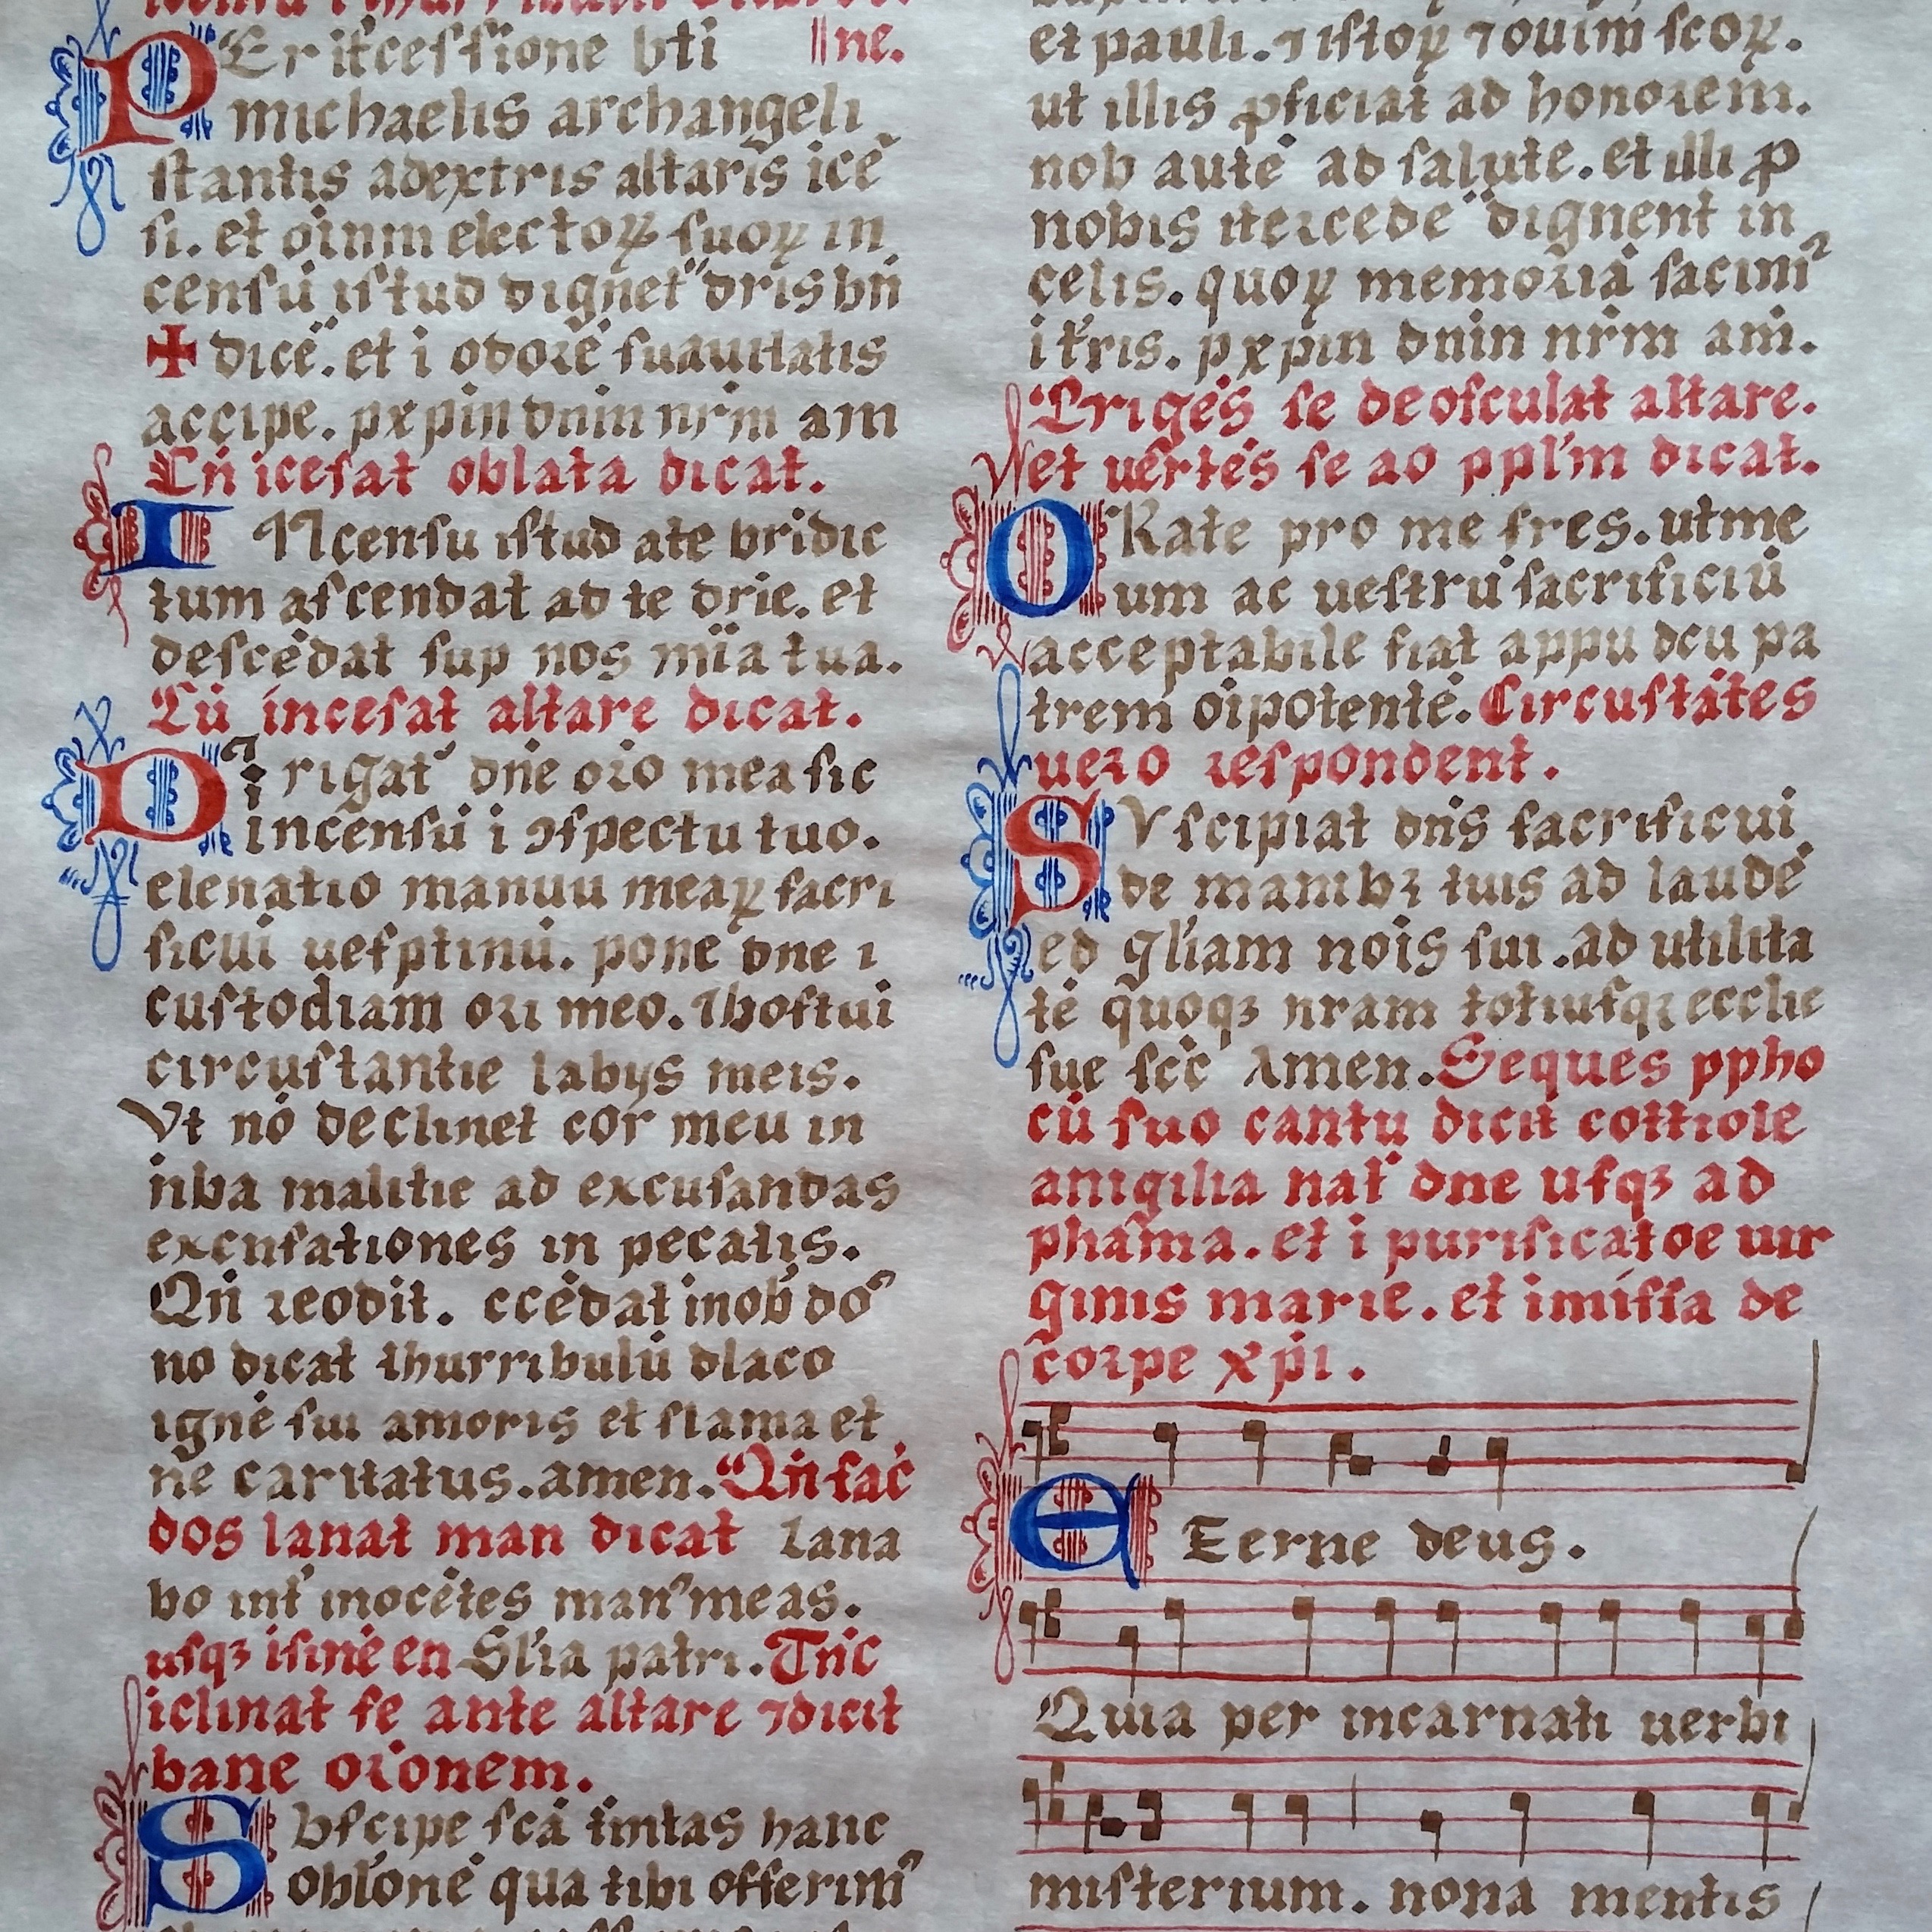 PEr it̄cessione bti ‖ne.
michaelis archangeli
stantis adextris altaris icē
si. et oīnm electoꝝ suoꝝ in
censū istud dignet dn̄s bn̄
✠ dicē. et i odorē suauitatis
accipe. pxpm̄ dnm̄ nr̄m am
Cn̄ icēsat oblata dicat.
INcensu istud ate bn̄dic
tum ascendat ad te dn̄e. et
descēdat sup nos mīa tua.
Cū incesat altare dicat.
Dirigat᷑ dn̄e oro mea sic
incensū i ꝯspectu tuo.
elenatio manuu meaꝝ sacri
ficui uesptinū. pone dne i
custodiam ori meo. ⁊hostui
circustantie labijs meis.
Vt nō declinet cor meu in
ūba malitie ad excusandas
excnsationes in pecatis.
Qn̄ reddit. ccēdat inob do
no dicat thurribulū dIaco
ignē sui amoris et flama et
ne caritatus. amen. Qn̄ sac̄
dos lanat man dicat Lana
bo int᷑ inocētes man᷒ meas.
usqꝫ isinē en Glia patri. Tn̄c
iclinat se ante altare ⁊dicit
bane orōnem.
SVscipe scā tinitas hanc
oblonē qua tibi offerim᷒
et pauli. ⁊istoꝝ ⁊ouim̄ scoꝝ.
ut illis ꝓficiat ad honorem.
nob autē ad salute. et illi ꝓ
nobis itercede dignent in
celis. quoꝝ memoriā facim᷒
i tr̄ris. pxpm̄ dnin nr̄m am̄.
Erigēs se deosculat altare.
et uertēs se ad ppl̄m dicat.
ORate pro me fres. utme
um ac uestrū sacrificiū
acceptabile fiat appu dcu pa
trem oīpotentē. Circustātes
uero respondent.
SVscipiat dn̄s sacrificui
de manibꝫ tuis ad laudē
ed gl̄iam nois sui. ad utilita
tē quoqꝫ nram totiusqꝫ ecclie
sue scc̄ Amen. Seques ppho
cū suo cantu dicit cottiole
anigilia nat dne usqꝫ ad
phama. et i purificatoe uir
ginis marie. et imissa de
corpe xp̄i.
eEerne deus.
Quia per incarnati uerbi
misterium. nona mentis